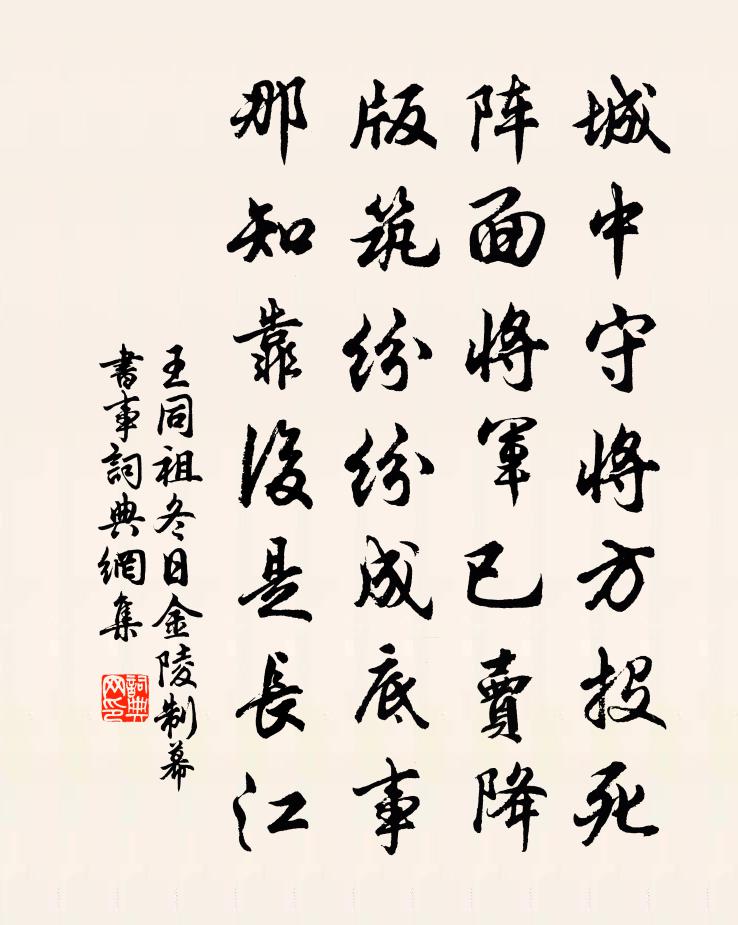 城中守将方投死
阵面将軍已賣降
版筑纷纷成底事
那知靠後是長江
王同祖冬日金陵制幕
書事詞典網集
詞典
网印